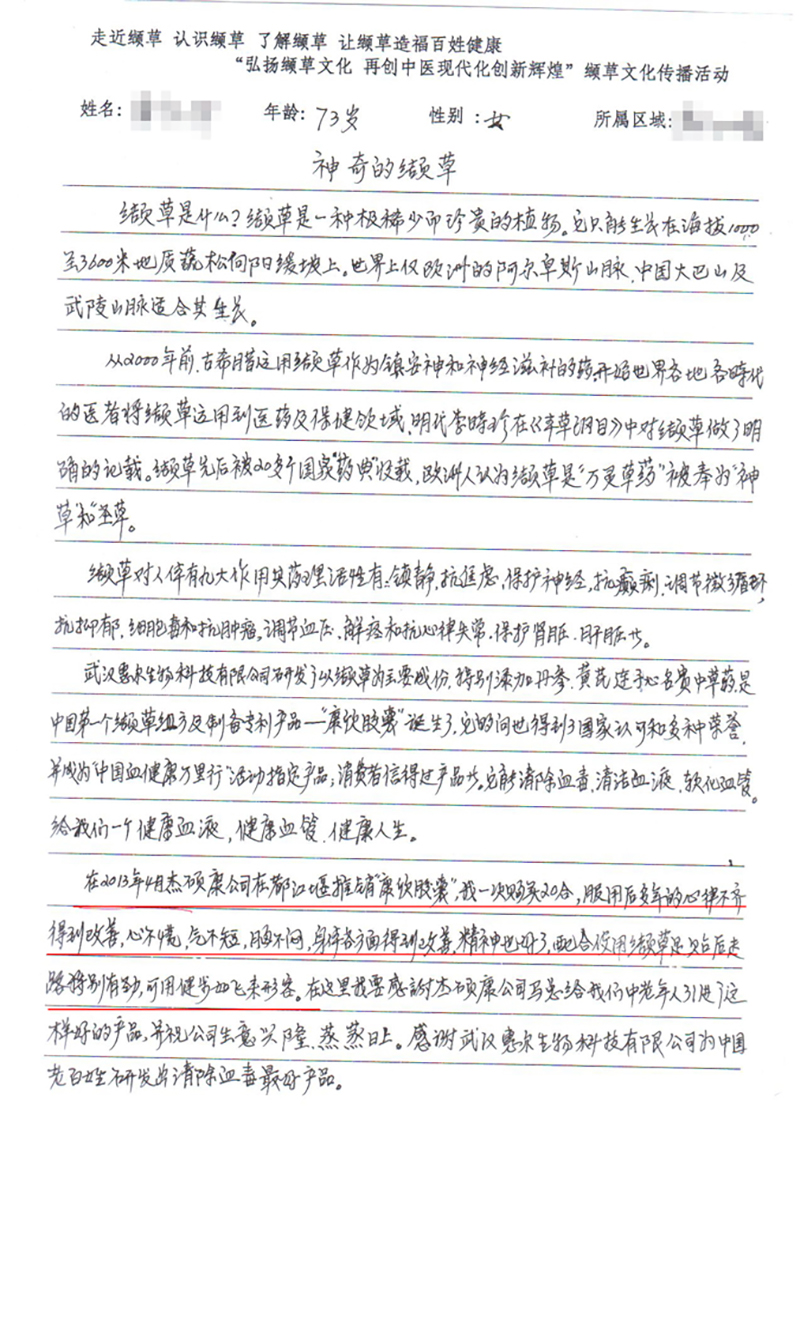 走近缬草 认识缬草 了解缬草 让缬草造福百姓健康
“弘扬缬草文化 再创中医现代化创新辉煌”缬草文化传播活动
姓名: 年龄: 73岁 性别:女 所属区域:
神奇的缬草
缬草是什么?缬草是一种极稀少而珍贵的植物。它只能生长在海拔1000
至3600米地质疏松向阳缓坡上。世界上仅欧洲的阿尔卑斯山脉、中国大巴山及
武陵山脉适合其生长。
从2000年前,古希腊运用缬草作为镇安神和神经滋补的药,开始世界各地各時代
的医者将缬草运用到医药及保健领域,明代李時珍在《本草纲目》中对缬草做了明
确的记载。缬草先后被20多个国家“药典”收载,欧洲人认为缬草是“万灵草药”被奉为“神
草”和“圣草。
缬草对人体有九大作用其药理活性有:镇静,抗焦虑,保护神经,抗癫痫,调节微循环,
抗抑郁,细胞毒和抗肿瘤,调节血压,解痉和抗心律失常,保护肾脏、肝脏等。
武汉惠尔生物科技有限公司研发了以缬草为主要成份,特别添加丹参、黄芪、莲子心名贵中草药,是
中国第一个缬草组方及制备专利产品——“康欣胶囊”诞生了,它的问也得到了国家认可和多种荣誉,
并成为“中国血健康万里行”活动指定产品;消费者信得过产品等。它能清除血毒、清洁血液、软化血管。
给我们一个健康血液,健康血管、健康人生。
在2013年4月杰硕康公司在都江堰推销“康欣胶囊”,我一次购买20合,服用后多年的心律不齐
得到改善,心不慌,气不短,胸不闷,身体各方面得到改善,精神也好了,配合使用缬草足浴后走
路特别有劲,可用健步如飞来形容。在这里我要感謝杰硕康公司马总给我们中老年人引进了这
样好的产品,并祝公司生意兴隆、蒸蒸日上。感谢武汉惠尔生物科技有限公司为中国
老百姓研发出清除血毒最好产品。